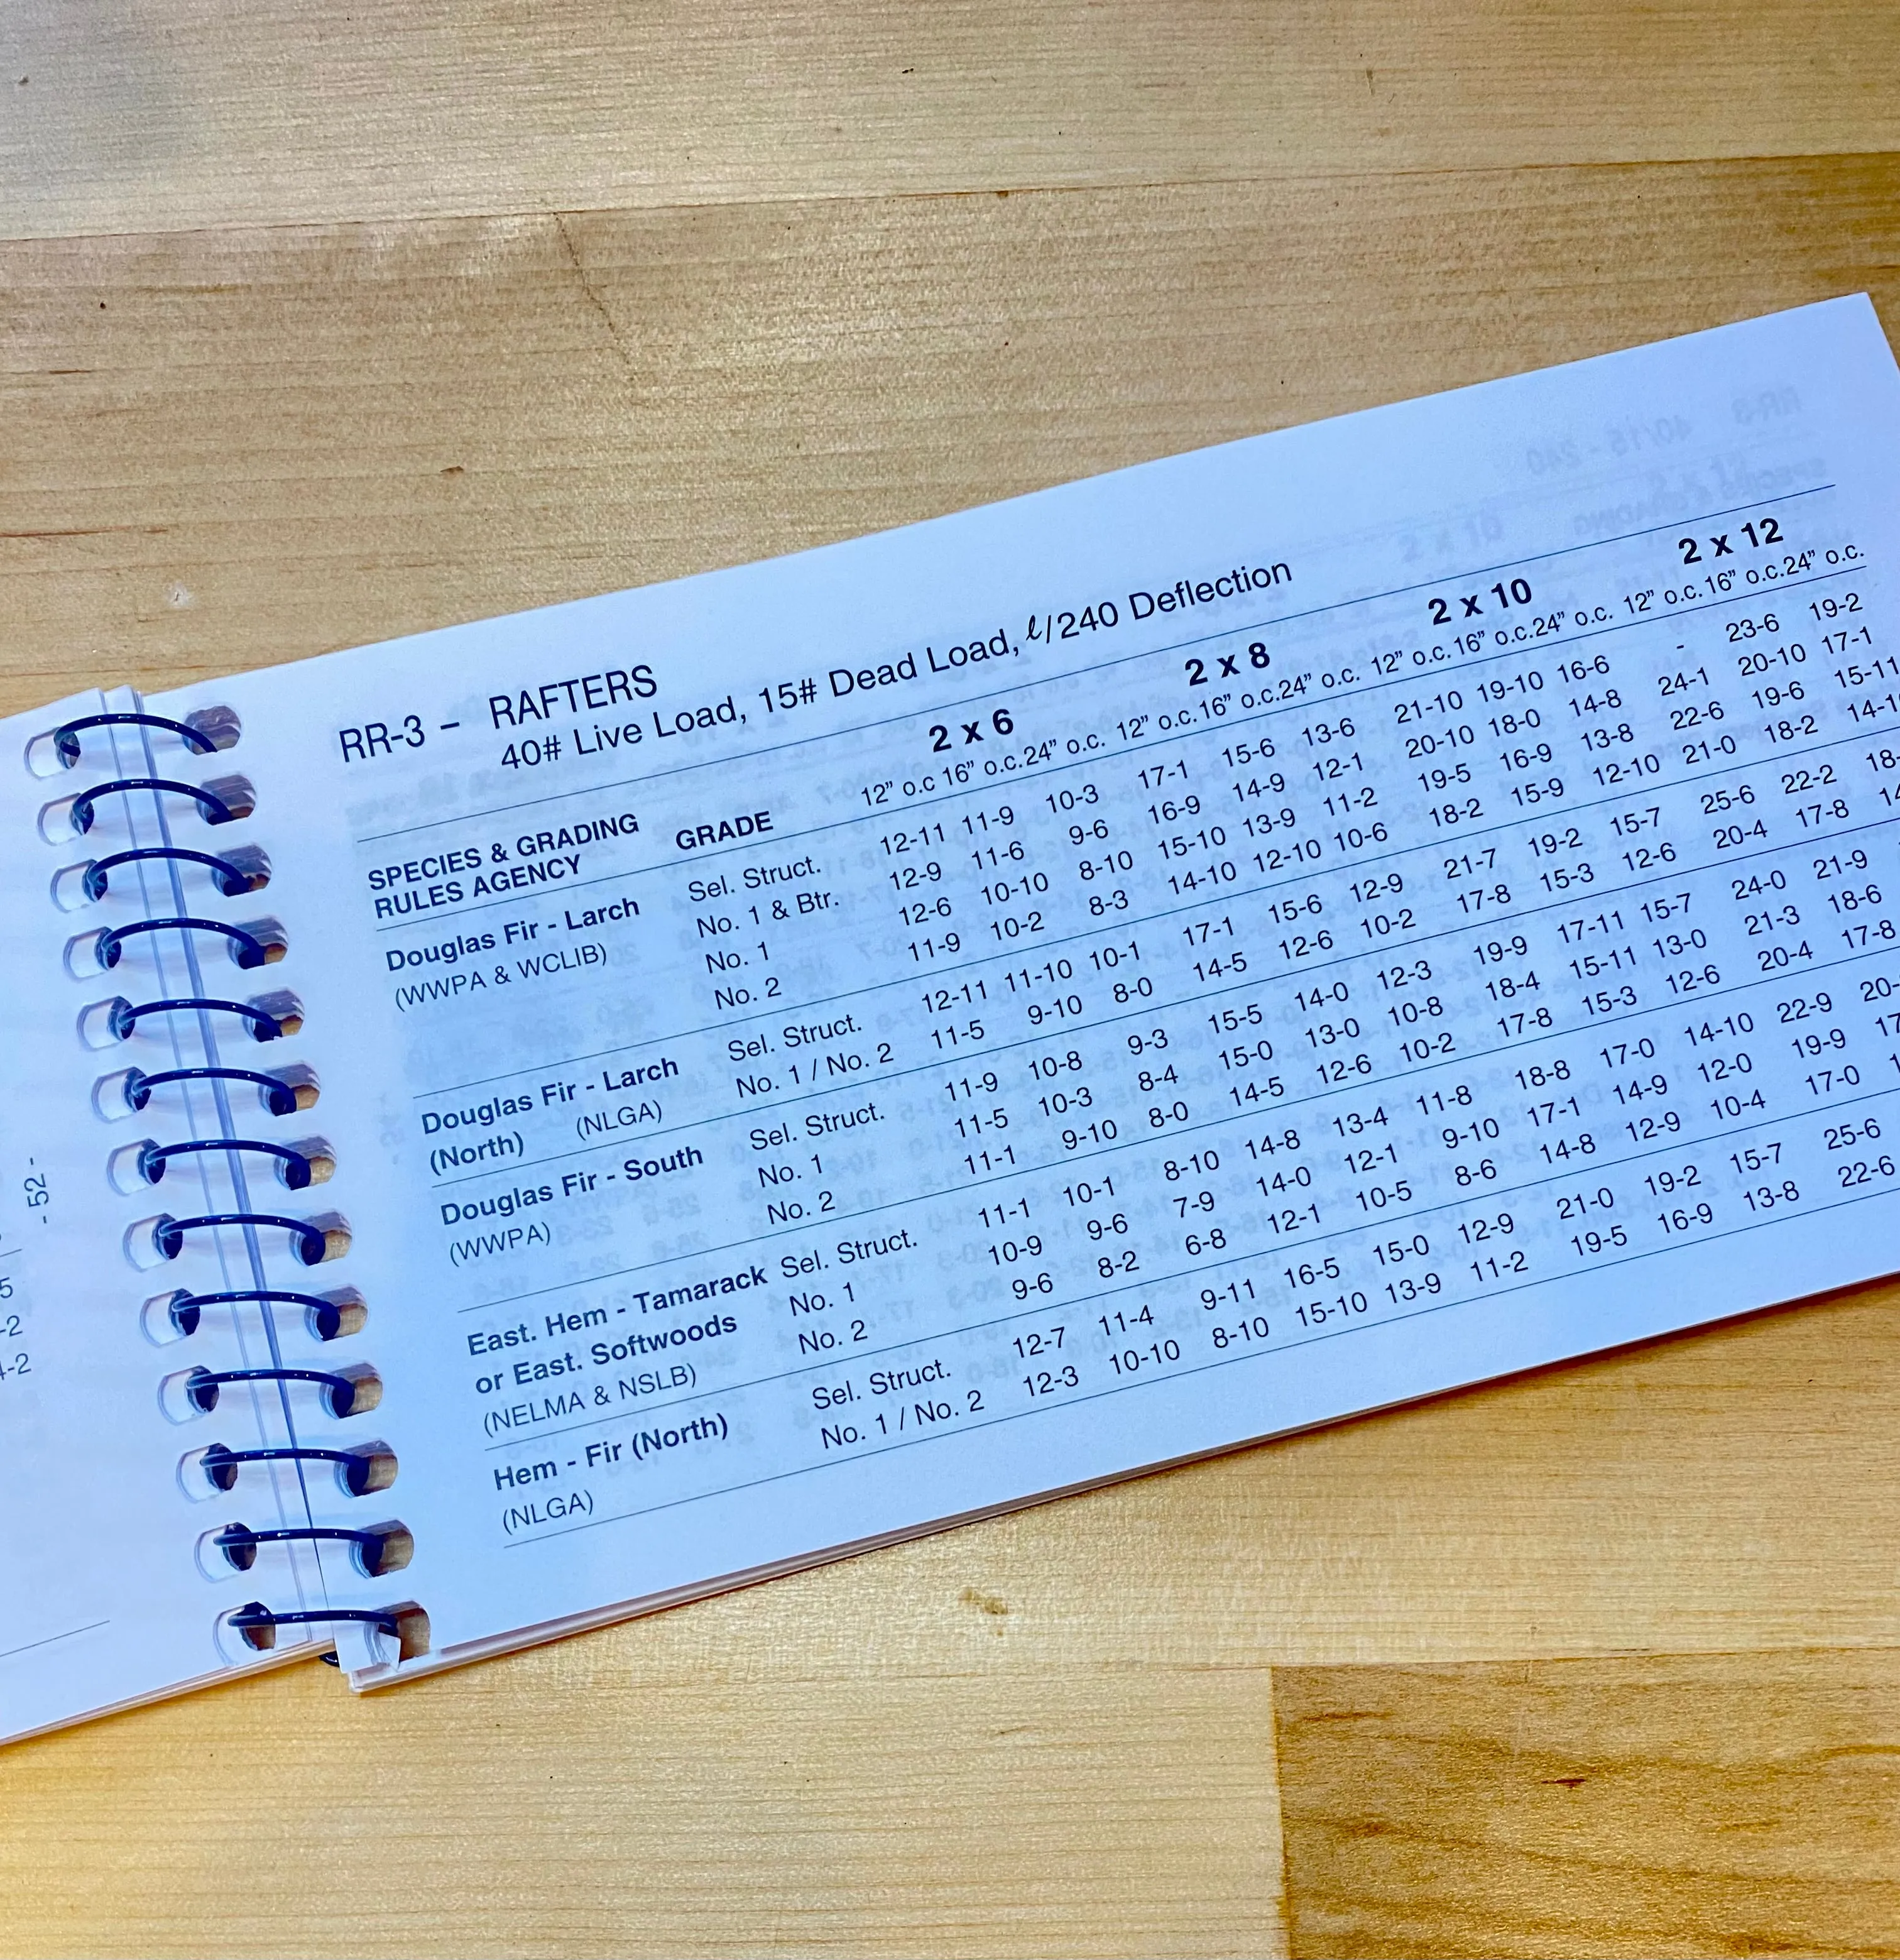 - 52 -
RR-3 – RAFTERS
40# Live Load, 15# Dead Load, ℓ/240 Deflection
2 x 6 2 x 8 2 x 10 2 x 12
SPECIES & GRADING
RULES AGENCY GRADE 12” o.c 16” o.c.24” o.c. 12” o.c.16” o.c.24” o.c. 12” o.c.16” o.c.24” o.c. 12” o.c.16” o.c.24” o.c.
Douglas Fir - Larch Sel. Struct. 12-11 11-9 10-3 17-1 15-6 13-6 21-10 19-10 16-6 - 23-6 19-2
(WWPA & WCLIB) No. 1 & Btr. 12-9 11-6 9-6 16-9 14-9 12-1 20-10 18-0 14-8 24-1 20-10 17-1
No. 1 12-6 10-10 8-10 15-10 13-9 11-2 19-5 16-9 13-8 22-6 19-6 15-11
No. 2 11-9 10-2 8-3 14-10 12-10 10-6 18-2 15-9 12-10 21-0 18-2
Douglas Fir - Larch Sel. Struct. 12-11 11-10 10-1 17-1 15-6 12-9 21-7 19-2 15-7 25-6 22-2
(North) (NLGA) No. 1 / No. 2 11-5 9-10 8-0 14-5 12-6 10-2 17-8 15-3 12-6 20-4 17-8
Douglas Fir - South Sel. Struct. 11-9 10-8 9-3 15-5 14-0 12-3 19-9 17-11 15-7 24-0 21-9
(WWPA) No. 1 11-5 10-3 8-4 15-0 13-0 10-8 18-4 15-11 13-0 21-3 18-6
No. 2 11-1 9-10 8-0 14-5 12-6 10-2 17-8 15-3 12-6 20-4 17-8
East. Hem - Tamarack Sel. Struct. 11-1 10-1 8-10 14-8 13-4 11-8 18-8 17-0 14-10 22-9
or East. Softwoods No. 1 10-9 9-6 7-9 14-0 12-1 9-10 17-1 14-9 12-0 19-9
(NELMA & NSLB) No. 2 9-6 8-2 6-8 12-1 10-5 8-6 14-8 12-9 10-4 17-0
Hem - Fir (North) Sel. Struct. 12-7 11-4 9-11 16-5 15-0 12-9 21-0 19-2 15-7 25-6
(NLGA) No. 1 / No. 2 12-3 10-10 8-10 15-10 13-9 11-2 19-5 16-9 13-8 22-6